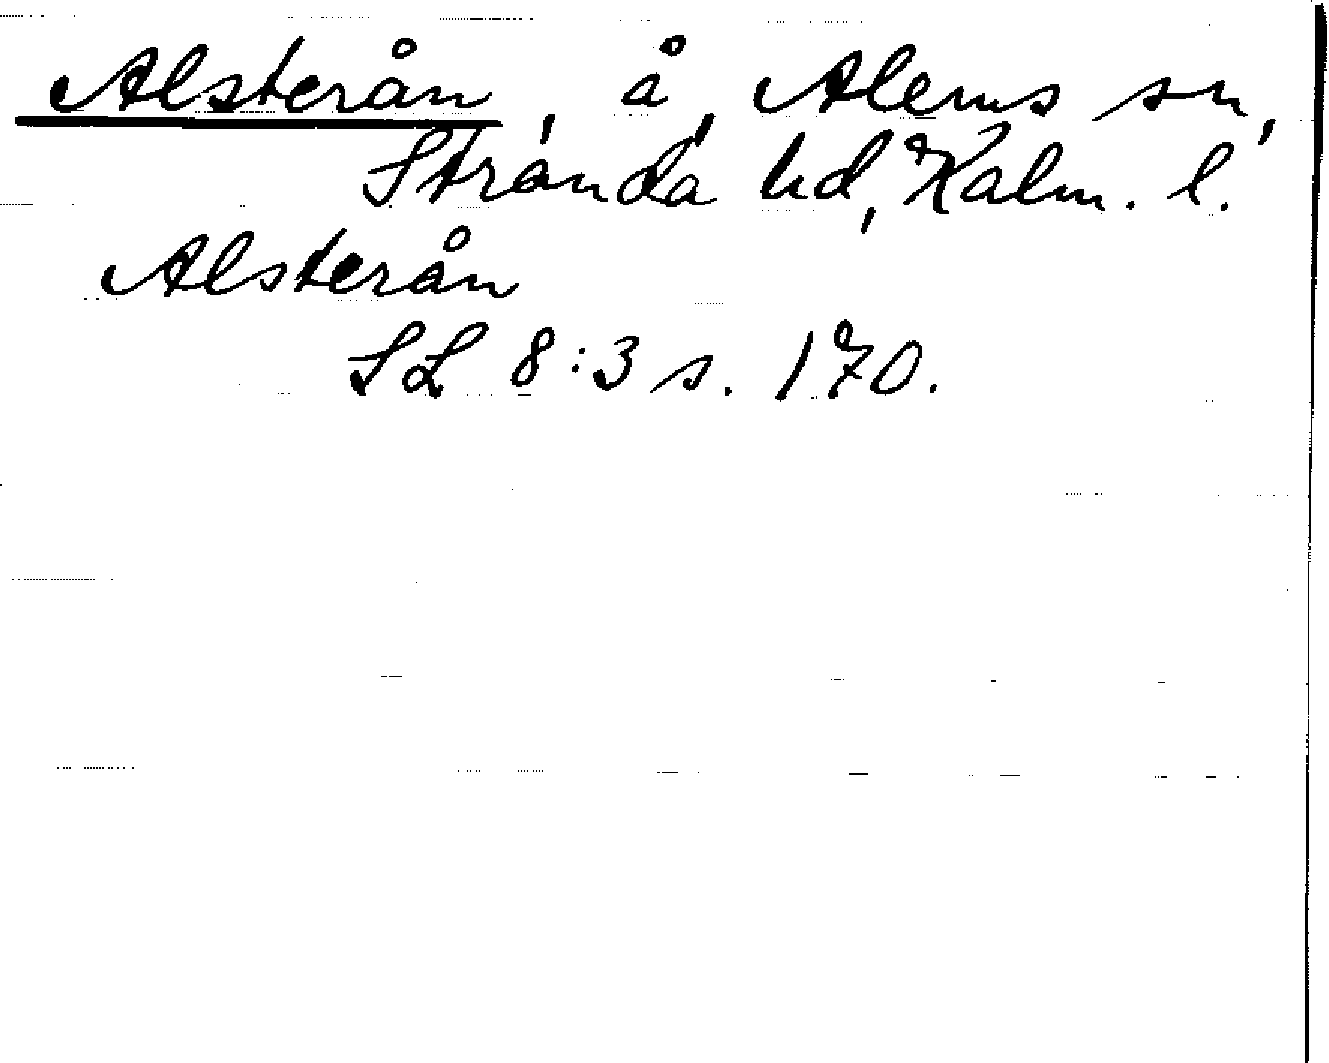 Alsterån, å, Alems sn,
Stranda hd, Kalm. l.
Alsterån
SL 8:3 s. 170.